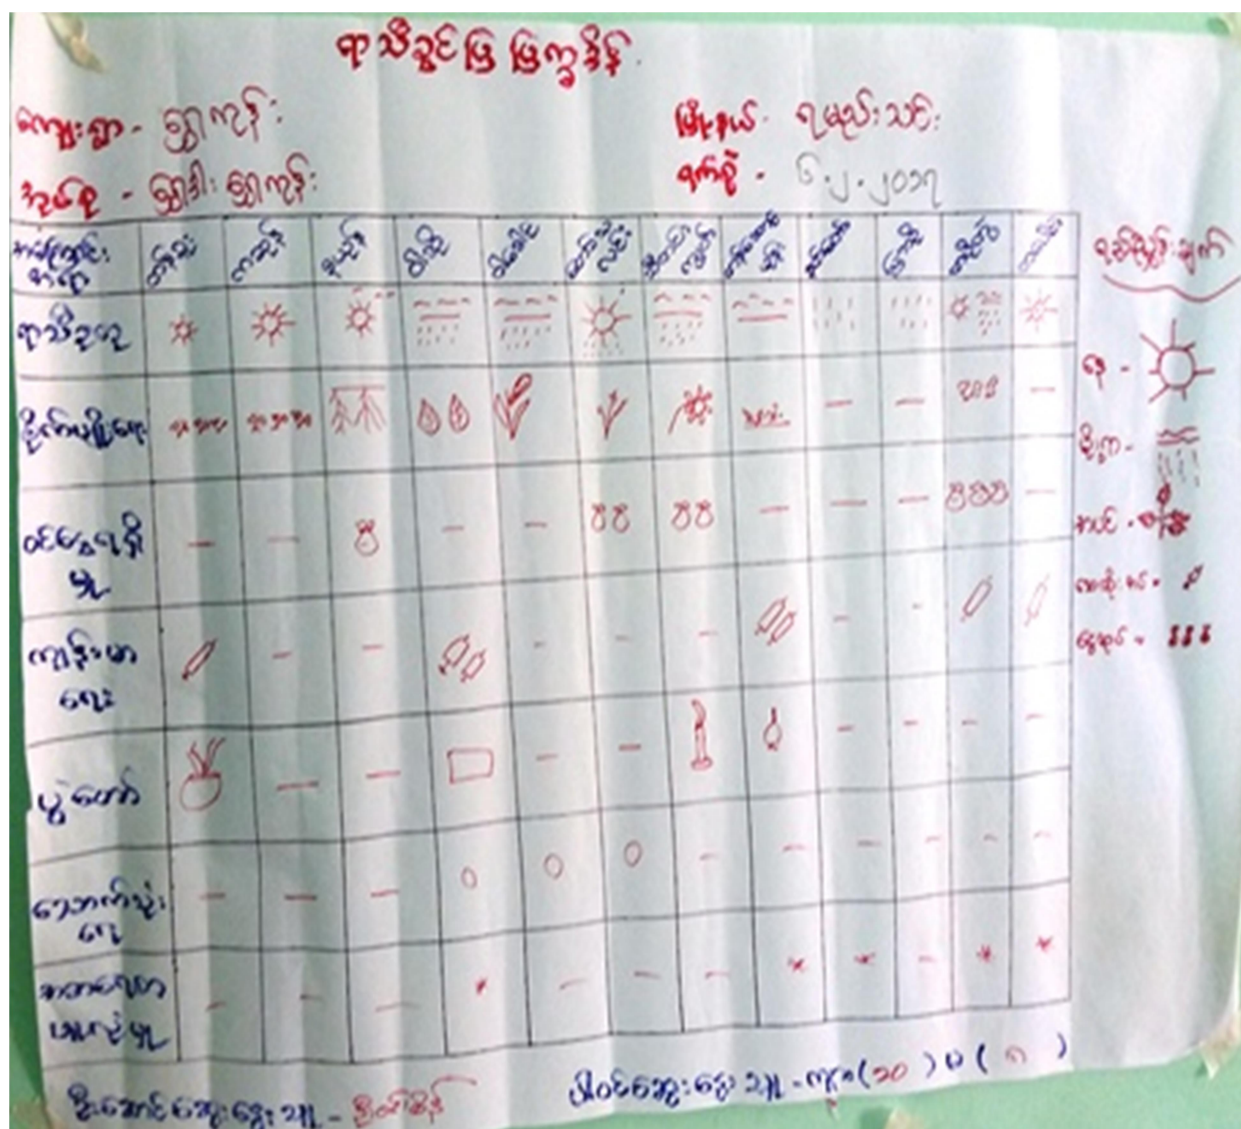 ရာသီခွင်ပြ ပြက္ခဒိန်
ကျေးရွာ - ရွှေကုန်း
မြို့နယ် - ရမည်းသင်း
အုပ်စု - ရွှေဒါး ရွှေကုန်း
ရက်စွဲ - ၆.၂.၂၀၁၇
အကြောင်းအရာ
တန်ခူး ကဆုန် နယုန် ဝါဆို ဝါခေါင် တော်သလင်း သီတင်းကျွတ် တန်ဆောင်မုန်း နတ်တော် ပြာသို တပို့တွဲ တပေါင်း
ရာသီဥတု
စိုက်ပျိုးရေး
ဝင်ငွေရရှိ
မှု
ကျန်းမာ
ရေး
ပွဲတော်
သောက်သုံး
ရေ
အစာရေစာ
ရှားပါးမှု
နေ -
မိုးရွာ -
အပင် -
ဆေးထိုးအပ် -
ငွေထုပ် -
ဦးဆောင်ဆွေးနွေးသူ -
ပါဝင်ဆွေးနွေးသူ - ကျား (၁၀) မ (၈)